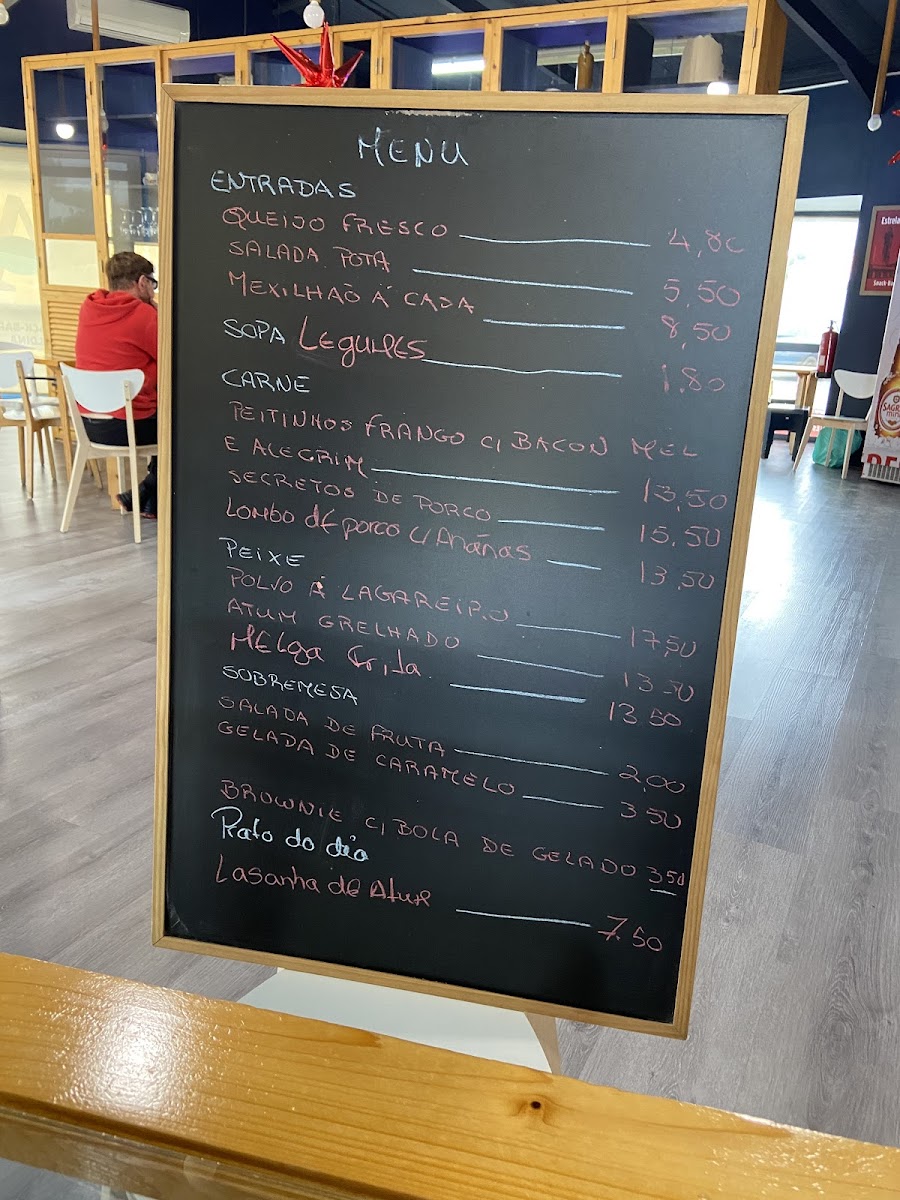 MENU
ENTRADAS
QUEIJO FRESCO 4,80
SALADA POTA 5,50
MEXILHAÕ Á CADA 8,50
SOPA LEGUMES 1.80
CARNE
PEITINHOS FRANGO C/ BACON MEL
E ALECRIM 13,50
SECRETOS DE PORCO 15,50
Lombo de porco c/ Ananás 13,50
PEIXE
POLVO Á LAGAREIRO 17,50
ATUM GRELHADO 13 50
MELGA Frita 13.50
SOBREMESA
SALADA DE FRUTA 2,00
GELADA DE CARAMELO 3 50
BROWNIE C/ BOLA DE GELADO 3 50
Prato do dia
Lasanha de Atum 7.50
Estrela
Snack-Bar
SAGRES